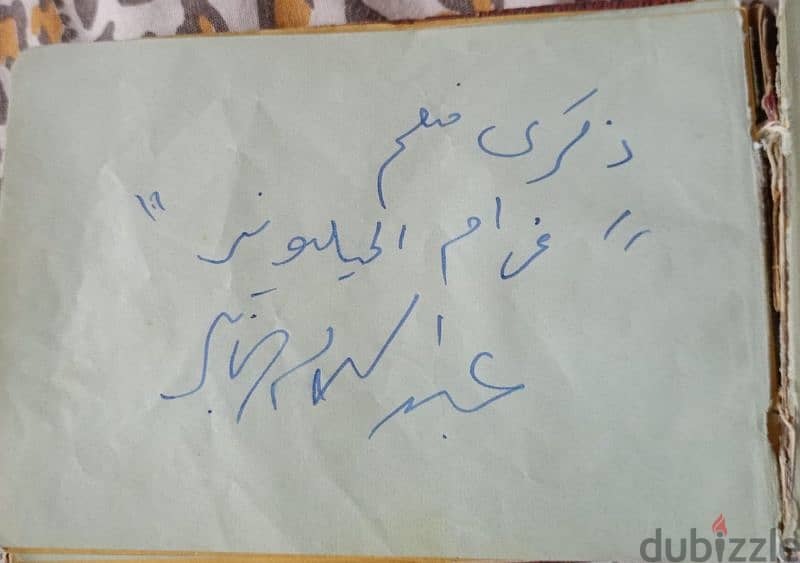 ذكرى فيلم
" غرام المليونير "
عبد السلام النابلسي
dubizzle